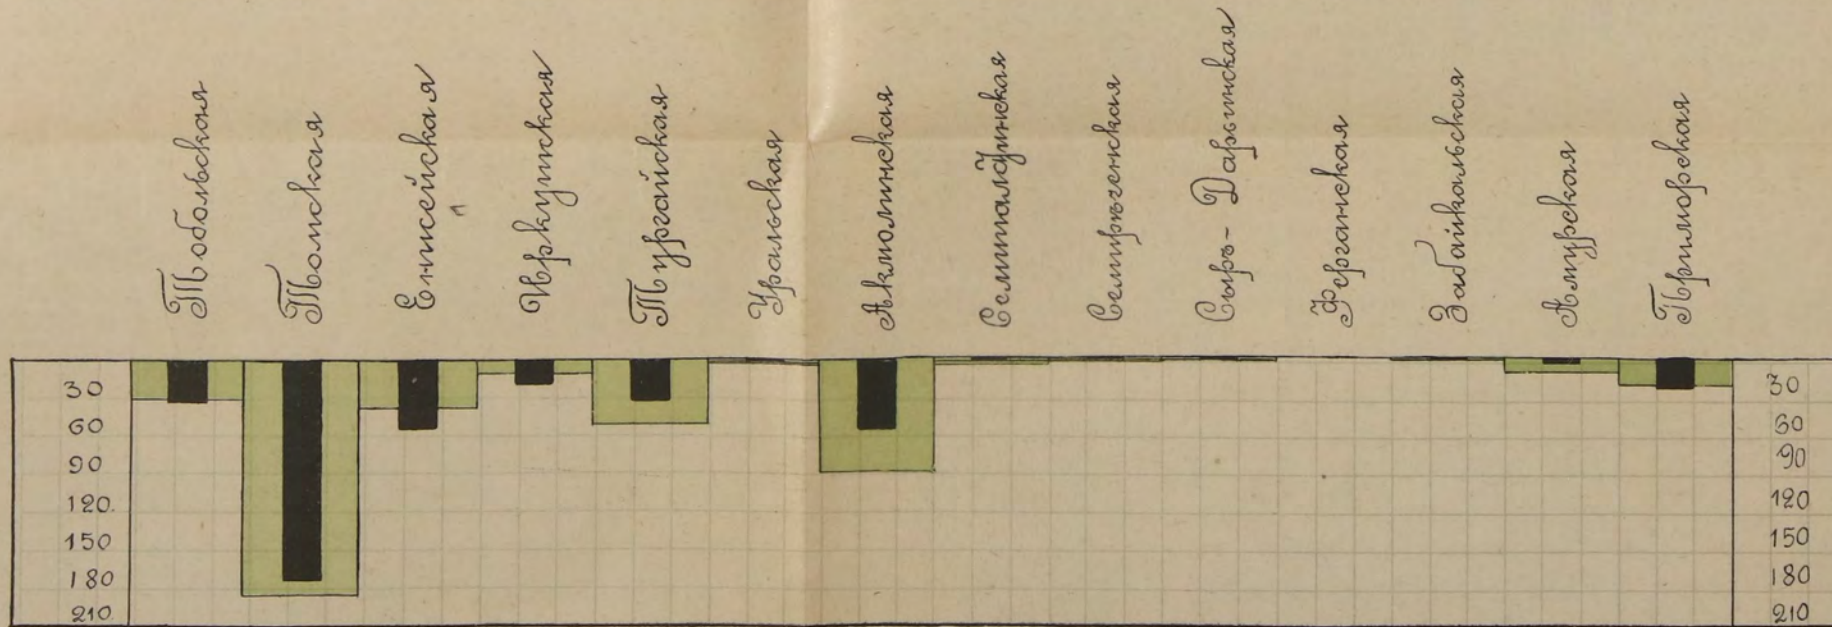 Тобольская
Томская
Енисейская
Иркутская
Тургайская
Уральская
Акмолинская
Семипалатинская
Семирѣченская
Сыръ-Дарьинская
Ферганская
Забайкальская
Амурская
Приморская
30
60
90
120.
150
180
210
30
60
90
120
150
180
210